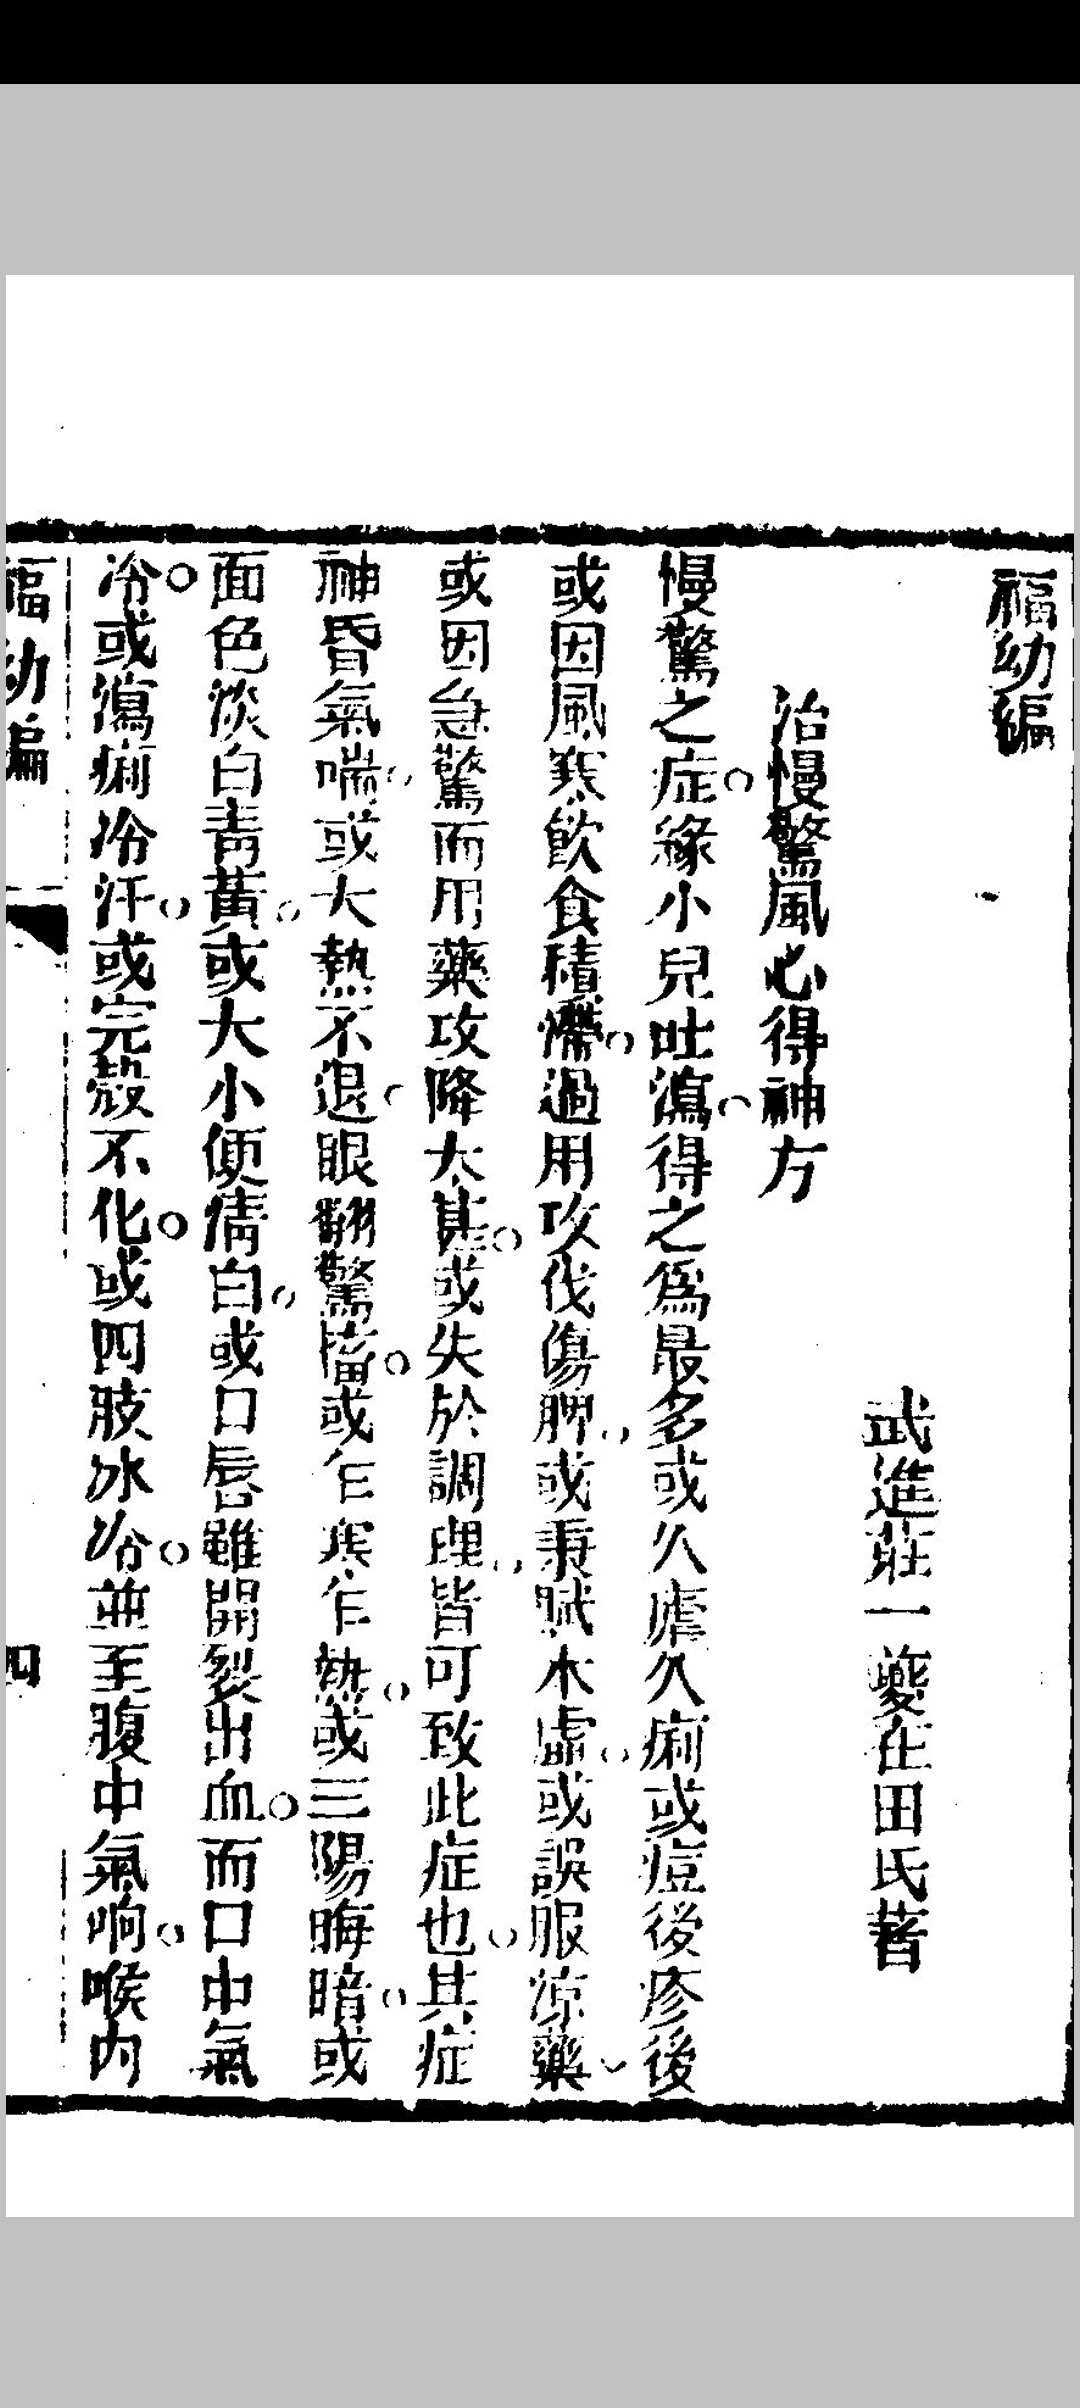 福幼編
武進莊一夔在田氏著
治慢驚風心得神方
慢驚之症緣小兒吐瀉得之爲最多或久瘧久痢或痘後疹後
或因風寒飲食積滯過用攻伐傷脾或秉賦本虛或誤服涼藥
或因急驚而用藥攻降太甚或失於調理皆可致此症也其症
神昏氣喘或大熱不退眼翻驚搐或乍寒乍熱或三陽晦暗或
面色淡白青黃或大小便清白或口唇雖開裂出血而口中氣
冷或瀉痢冷汗或完穀不化或四肢冰冷並至腹中氣响喉內
福幼編
四